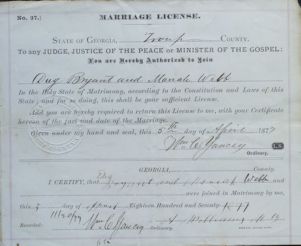 No. 97.
MARRIAGE LICENSE.
STATE OF GEORGIA, Troup COUNTY.
To any JUDGE, JUSTICE OF THE PEACE or MINISTER OF THE GOSPEL:
You are Hereby Authorized to Join
Aug Bryant and Mariah Webb
In the Holy State of Matrimony, according to the Constitution and Laws of this
State, and for so doing, this shall be your sufficient License.
And you are hereby required to return this License to me, with your Certificate
hereon of the fact and date of the Marriage.
Given under my hand and seal, this 5th day of April 1877
Wm C. Yancey
Ordinary.
GEORGIA, County
I CERTIFY, that and Webb and
were joined in Matrimony by me,
this day of Eighteen Hundred and Seventy
Recorded: Wm C. Yancey ordinary.